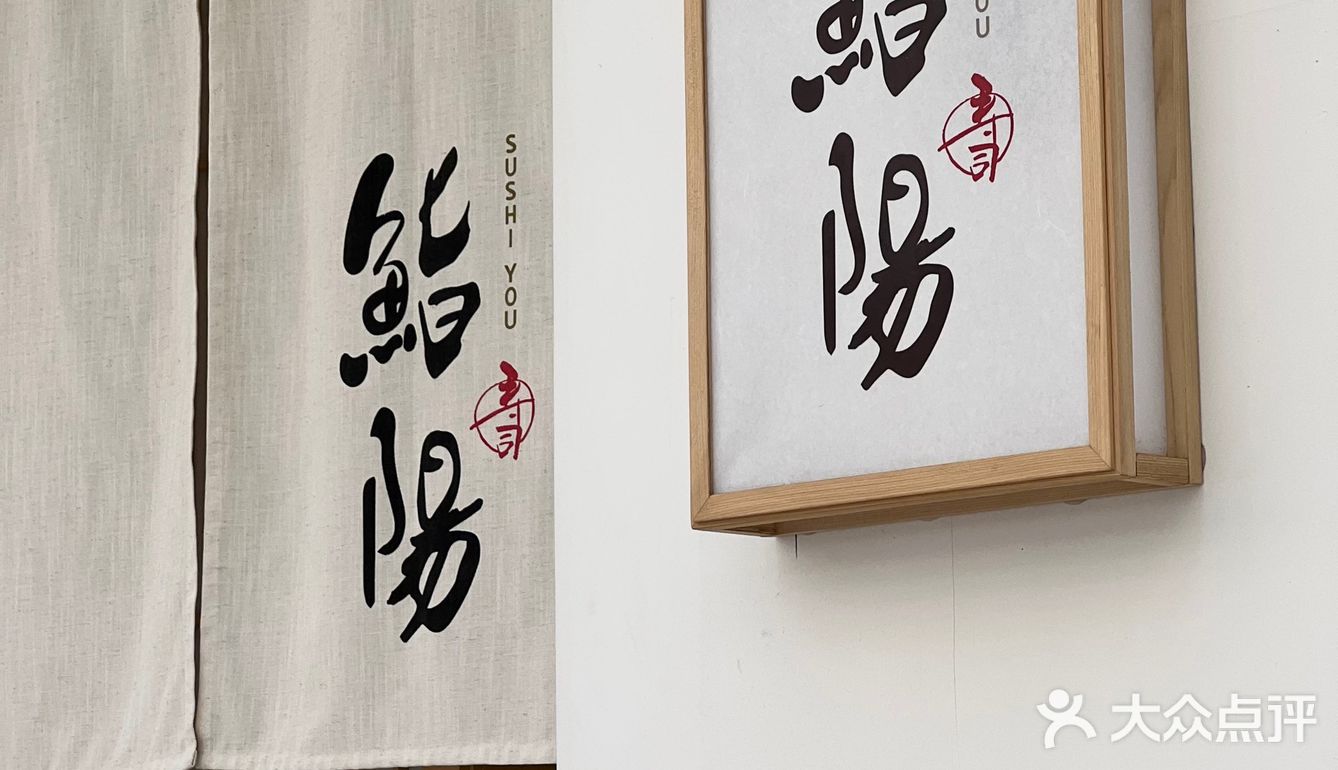 鮨陽
SUSHI YOU
寿司
鮨
陽
OU
寿司
大众点评